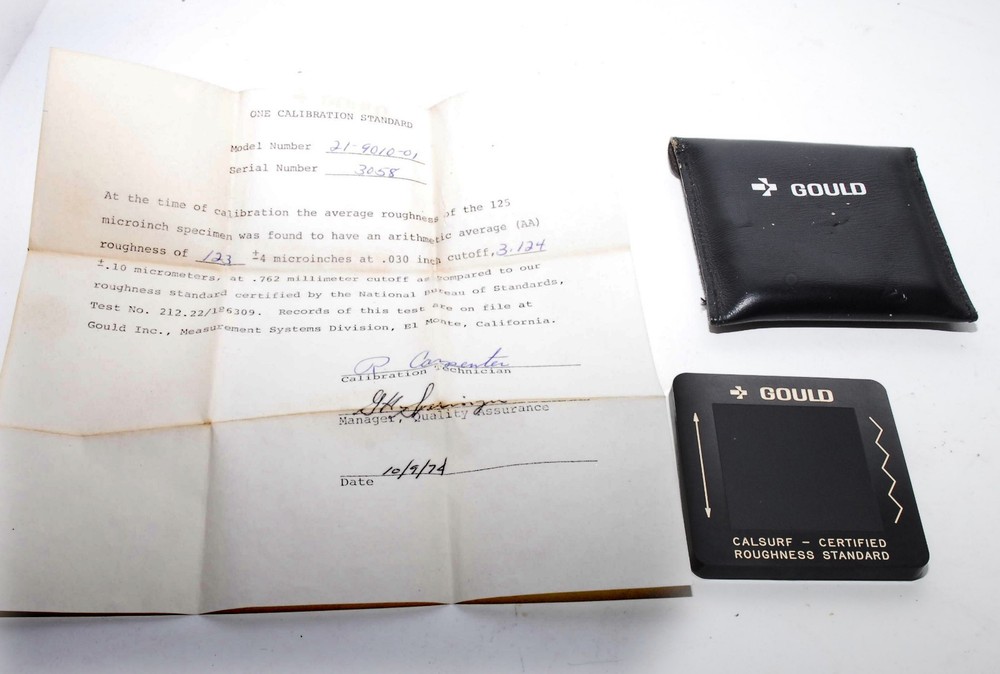 ONE CALIBRATION STANDARD
Model Number 21-9010-01
Serial Number 3058
At the time of calibration the average roughness of the 125
microinch specimen was found to have an arithmetic average (AA)
roughness of 123 ±4 microinches at .030 inch cutoff, 3.124
±.10 micrometers, at .762 millimeter cutoff as compared to our
roughness standard certified by the National Bureau of Standards,
Test No. 212.22/ Records of this test are on file at
Gould Inc., Measurement Systems Division, El Monte, California.
R Carpenter
Calibration Technician
Manager, Quality Assurance
Date 10/9/74
GOULD
GOULD
CALSURF - CERTIFIED
ROUGHNESS STANDARD